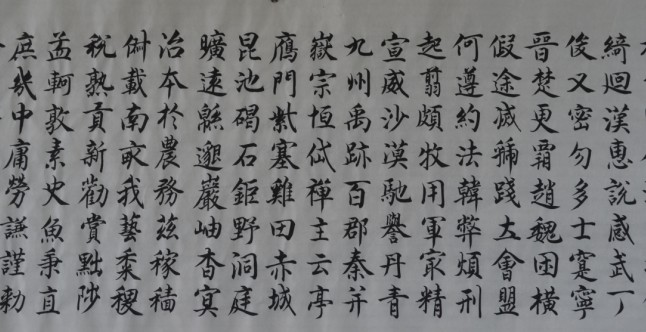 綺迴漢惠說感武丁
俊乂密勿多士寔寧
晉楚更霸趙魏困橫
假途滅虢踐土會盟
何遵約法韓弊煩刑
起翦頗牧用軍冣精
宣威沙漠馳譽丹青
九州禹跡百郡秦并
嶽宗恒岱禪主云亭
鴈門紫塞雞田赤城
昆池碣石鉅野洞庭
曠遠緜邈巖岫杳冥
治本於農務茲稼穡
俶載南畝我藝黍稷
稅熟貢新勸賞黜陟
孟軻敦素史魚秉直
庶幾中庸勞謙謹勑